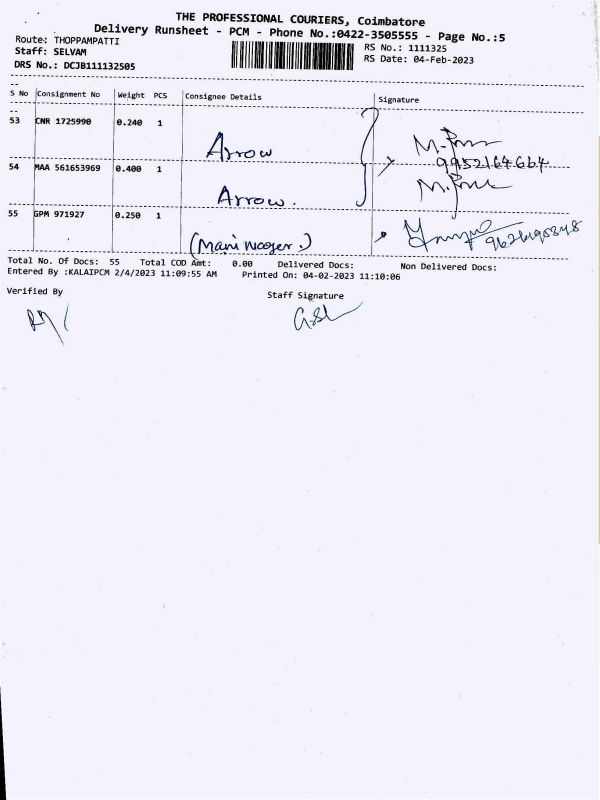 THE PROFESSIONAL COURIERS, Coimbatore
Delivery Runsheet - PCM - Phone No.:0422-3505555 - Page No.:5
Route: THOPPAMPATTI
RS No.: 1111325
Staff: SELVAM
RS Date: 04-Feb-2023
DRS No.: DCJB111132505
S No Consignment No Weight PCS Consignee Details Signature
53 CNR 1725990 0.240 1
Arrow
9952164664
54 MAA 561653969 0.400 1
Arrow.
55 GPM 971927 0.250 1
Total No. Of Docs: 55 Total COD Amt: 0.00 Delivered Docs: Non Delivered Docs:
Entered By :KALAIPCM 2/4/2023 11:09:55 AM Printed On: 04-02-2023 11:10:06
Verified By
Staff Signature